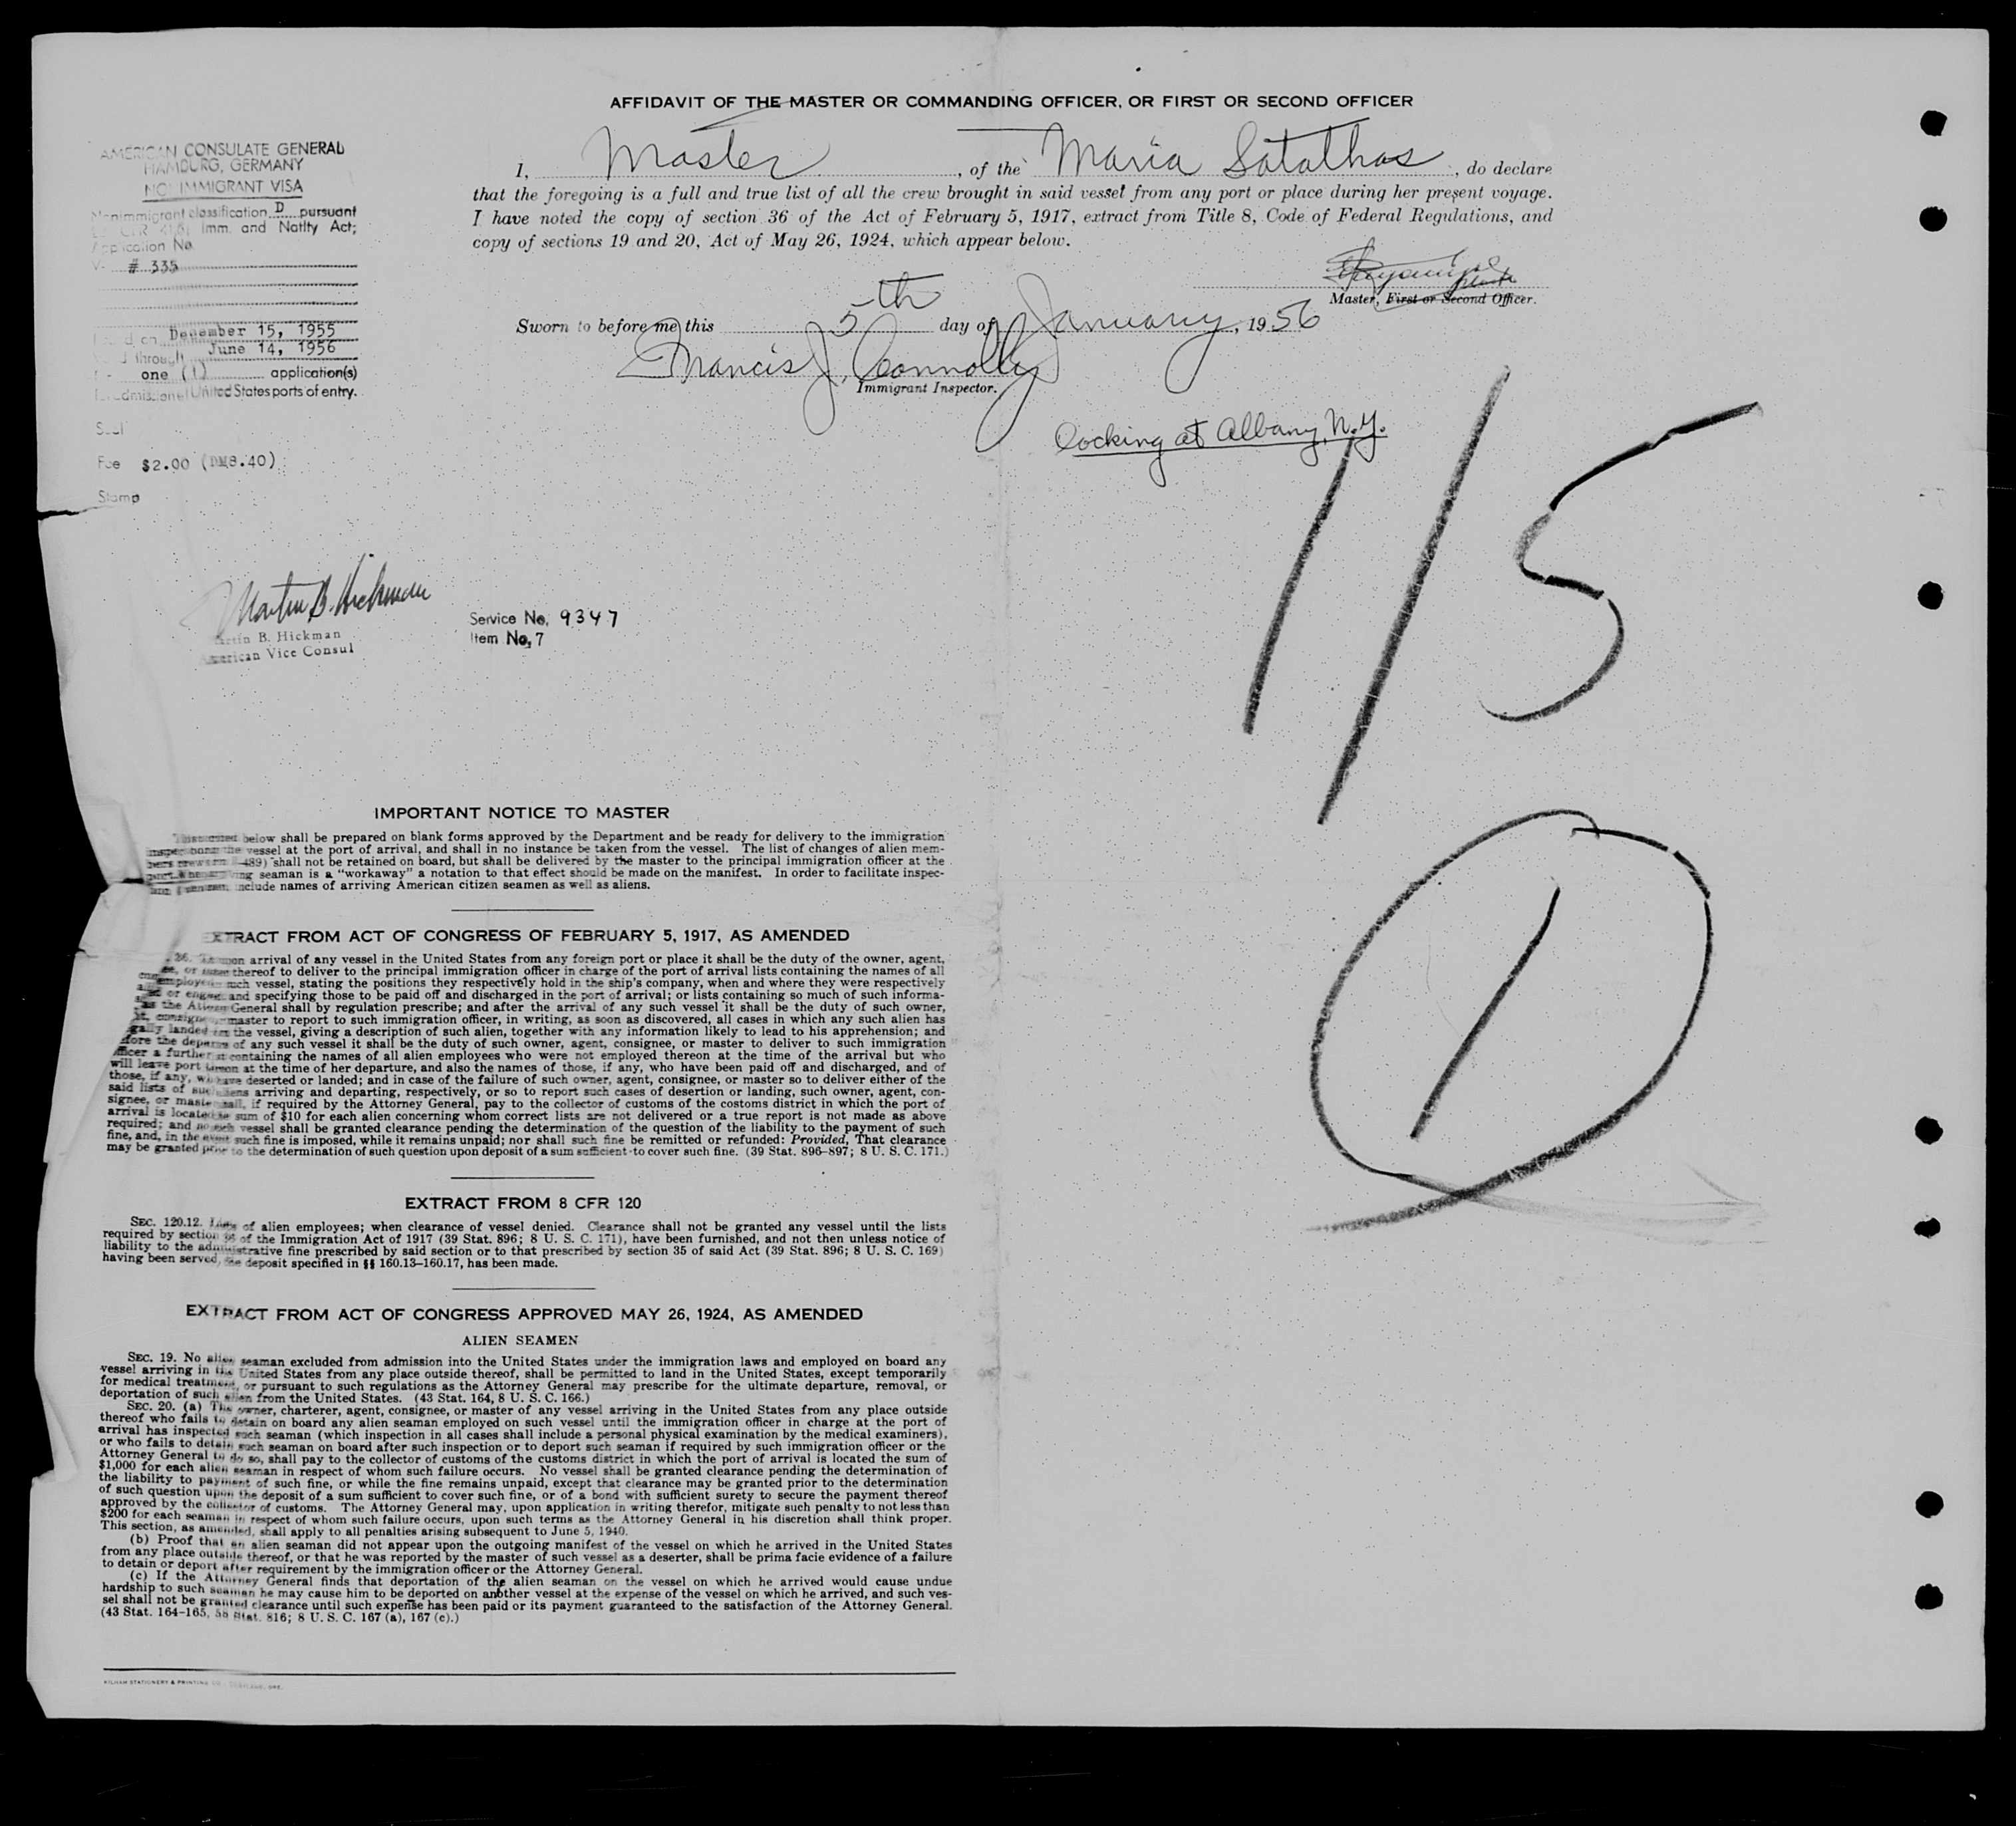 AFFIDAVIT OF THE MASTER OR COMMANDING OFFICER, OR FIRST OR SECOND OFFICER
AMERICAN CONSULATE GENERAL
HAMBURG, GERMANY
NONIMMIGRANT VISA
Nonimmigrant classification D pursuant
Imm. and Natlty Act;
Application No.
V- # 335
Issued on December 15, 1955
through June 14, 1956
one (1) application(s)
admission United States ports of entry.
Seal
Fee $2.00 (DM8.40)
Stamp
I, Master, of the Maria Statathos, do declare
that the foregoing is a full and true list of all the crew brought in said vessel from any port or place during her present voyage.
I have noted the copy of section 36 of the Act of February 5, 1917, extract from Title 8, Code of Federal Regulations, and
copy of sections 19 and 20, Act of May 26, 1924, which appear below.
Master, First or Second Officer.
Sworn to before me this 5th day of January, 1956
Francis J. Connolly
Immigrant Inspector.
Docking at Albany, N.Y.
1/5
1
Martin B. Hickman
Martin B. Hickman
American Vice Consul
Service No. 9347
Item No. 7
IMPORTANT NOTICE TO MASTER
below shall be prepared on blank forms approved by the Department and be ready for delivery to the immigration
vessel at the port of arrival, and shall in no instance be taken from the vessel. The list of changes of alien mem-
489) shall not be retained on board, but shall be delivered by the master to the principal immigration officer at the
seaman is a "workaway" a notation to that effect should be made on the manifest. In order to facilitate inspec-
include names of arriving American citizen seamen as well as aliens.
EXTRACT FROM ACT OF CONGRESS OF FEBRUARY 5, 1917, AS AMENDED
36. upon arrival of any vessel in the United States from any foreign port or place it shall be the duty of the owner, agent,
or thereof to deliver to the principal immigration officer in charge of the port of arrival lists containing the names of all
employed such vessel, stating the positions they respectively hold in the ship's company, when and where they were respectively
or engaged and specifying those to be paid off and discharged in the port of arrival; or lists containing so much of such informa-
as the Attorney General shall by regulation prescribe; and after the arrival of any such vessel it shall be the duty of such owner,
master to report to such immigration officer, in writing, as soon as discovered, all cases in which any such alien has
landed the vessel, giving a description of such alien, together with any information likely to lead to his apprehension; and
before the departure of any such vessel it shall be the duty of such owner, agent, consignee, or master to deliver to such immigration
officer a further containing the names of all alien employees who were not employed thereon at the time of the arrival but who
will leave port at the time of her departure, and also the names of those, if any, who have been paid off and discharged, and of
those, if any, who have deserted or landed; and in case of the failure of such owner, agent, consignee, or master so to deliver either of the
said lists of such aliens arriving and departing, respectively, or so to report such cases of desertion or landing, such owner, agent, con-
signee, or master shall, if required by the Attorney General, pay to the collector of customs of the customs district in which the port of
arrival is located sum of $10 for each alien concerning whom correct lists are not delivered or a true report is not made as above
required; and no such vessel shall be granted clearance pending the determination of the question of the liability to the payment of such
fine, and, in the event such fine is imposed, while it remains unpaid; nor shall such fine be remitted or refunded: Provided, That clearance
may be granted prior to the determination of such question upon deposit of a sum sufficient to cover such fine. (39 Stat. 896–897; 8 U. S. C. 171.)
EXTRACT FROM 8 CFR 120
SEC. 120.12. Lists of alien employees; when clearance of vessel denied. Clearance shall not be granted any vessel until the lists
required by section 36 of the Immigration Act of 1917 (39 Stat. 896; 8 U. S. C. 171), have been furnished, and not then unless notice of
liability to the administrative fine prescribed by said section or to that prescribed by section 35 of said Act (39 Stat. 896; 8 U. S. C. 169)
having been served, the deposit specified in §§ 160.13–160.17, has been made.
EXTRACT FROM ACT OF CONGRESS APPROVED MAY 26, 1924, AS AMENDED
ALIEN SEAMEN
SEC. 19. No alien seaman excluded from admission into the United States under the immigration laws and employed on board any
vessel arriving in the United States from any place outside thereof, shall be permitted to land in the United States, except temporarily
for medical treatment, or pursuant to such regulations as the Attorney General may prescribe for the ultimate departure, removal, or
deportation of such alien from the United States. (43 Stat. 164, 8 U. S. C. 166.)
SEC. 20. (a) The owner, charterer, agent, consignee, or master of any vessel arriving in the United States from any place outside
thereof who fails to detain on board any alien seaman employed on such vessel until the immigration officer in charge at the port of
arrival has inspected such seaman (which inspection in all cases shall include a personal physical examination by the medical examiners),
or who fails to detain such seaman on board after such inspection or to deport such seaman if required by such immigration officer or the
Attorney General to do so, shall pay to the collector of customs of the customs district in which the port of arrival is located the sum of
$1,000 for each alien seaman in respect of whom such failure occurs. No vessel shall be granted clearance pending the determination of
the liability to payment of such fine, or while the fine remains unpaid, except that clearance may be granted prior to the determination
of such question upon the deposit of a sum sufficient to cover such fine, or of a bond with sufficient surety to secure the payment thereof
approved by the collector of customs. The Attorney General may, upon application in writing therefor, mitigate such penalty to not less than
$200 for each seaman in respect of whom such failure occurs, upon such terms as the Attorney General in his discretion shall think proper.
This section, as amended, shall apply to all penalties arising subsequent to June 5, 1940.
(b) Proof that an alien seaman did not appear upon the outgoing manifest of the vessel on which he arrived in the United States
from any place outside thereof, or that he was reported by the master of such vessel as a deserter, shall be prima facie evidence of a failure
to detain or deport after requirement by the immigration officer or the Attorney General.
(c) If the Attorney General finds that deportation of the alien seaman on the vessel on which he arrived would cause undue
hardship to such seaman he may cause him to be deported on another vessel at the expense of the vessel on which he arrived, and such ves-
sel shall not be granted clearance until such expense has been paid or its payment guaranteed to the satisfaction of the Attorney General.
(43 Stat. 164–165, 58 Stat. 816; 8 U. S. C. 167 (a), 167 (c).)
KILHAM STATIONERY & PRINTING CO., PORTLAND, ORE.